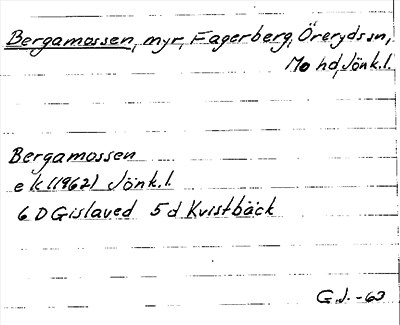 Bergamossen, myr, Fagerberg, Öreryds sn,
Mo hd, Jönk.l.
Bergamossen
e k (1962) Jönk.l.
6 D Gislaved 5 d Kvistbäck
G.J. -63